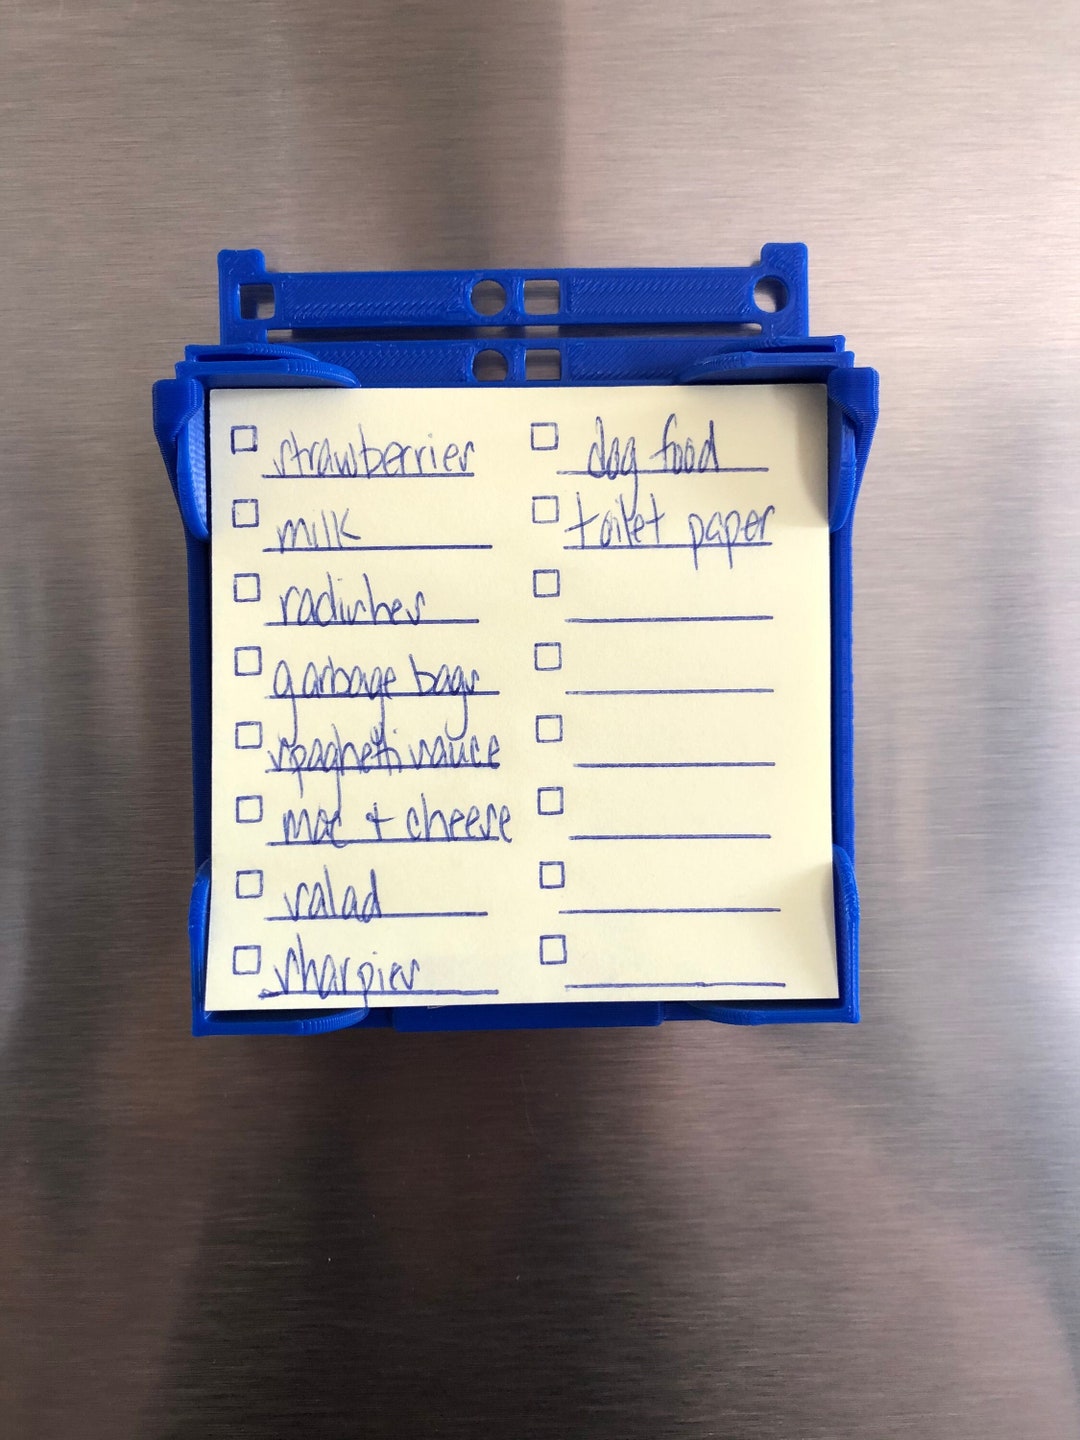 strawberries
milk
radishes
garbage bags
spaghetti sauce
mac + cheese
salad
sharpies
dog food
toilet paper